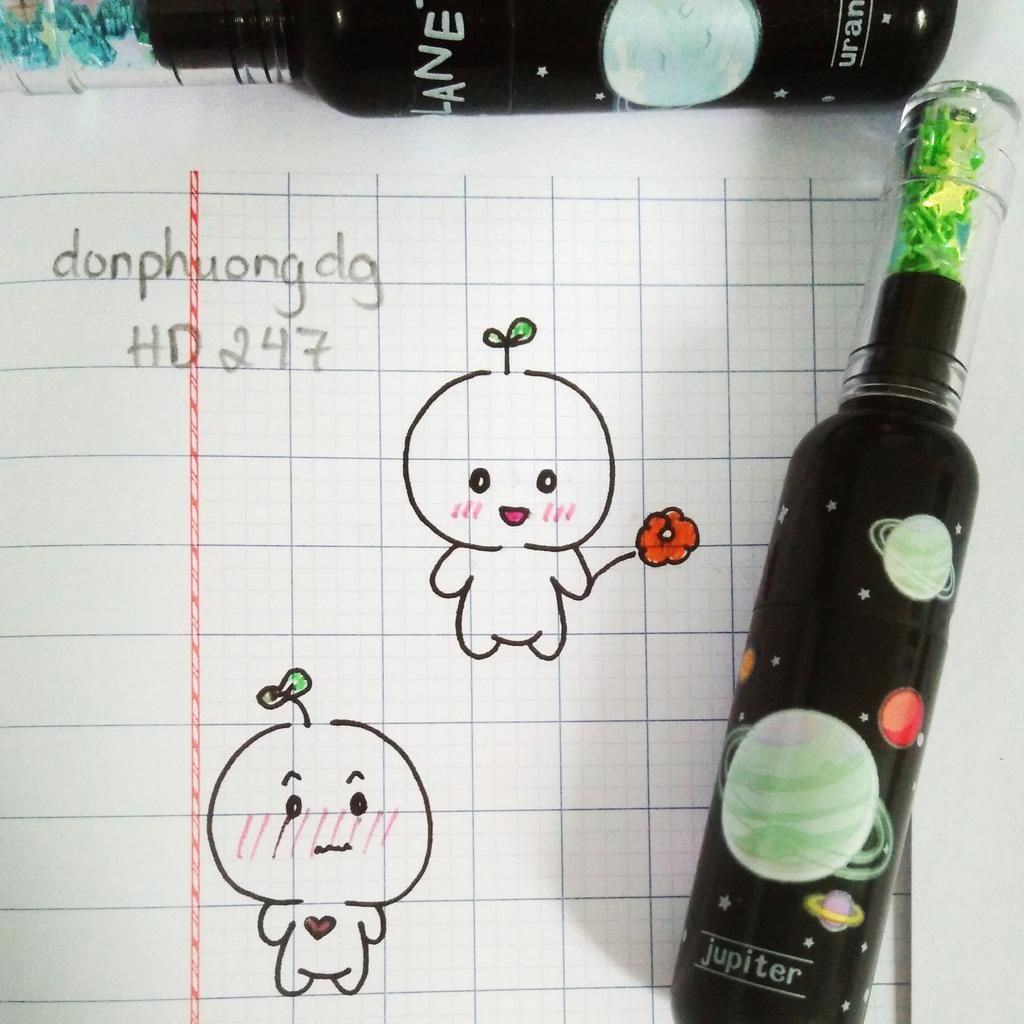 LANET
uran
donphuongdg
HD 247
jupiter